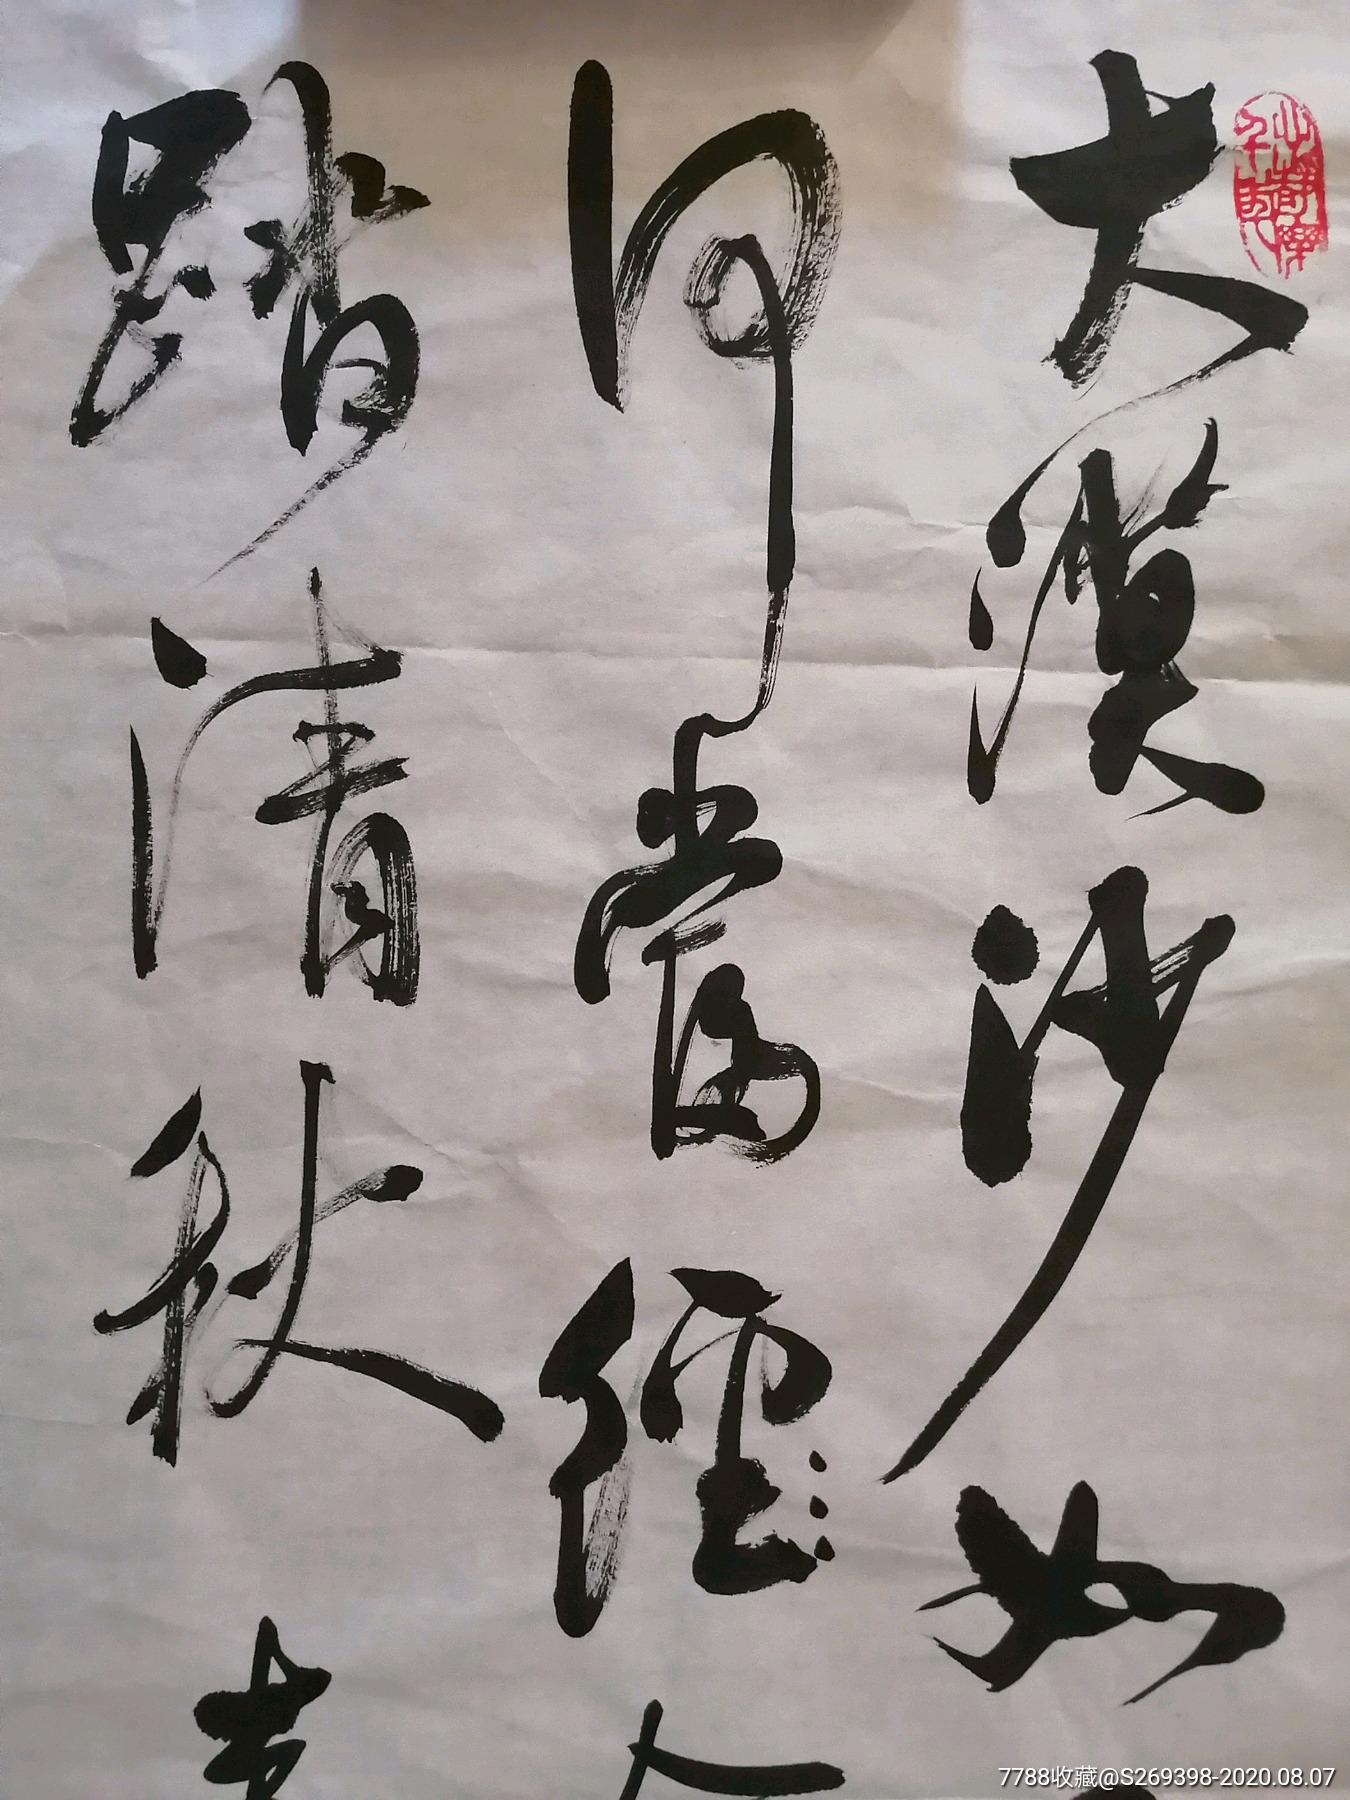 大漠沙如
何當經
踏清秋
7788收藏@S269398-2020.08.07